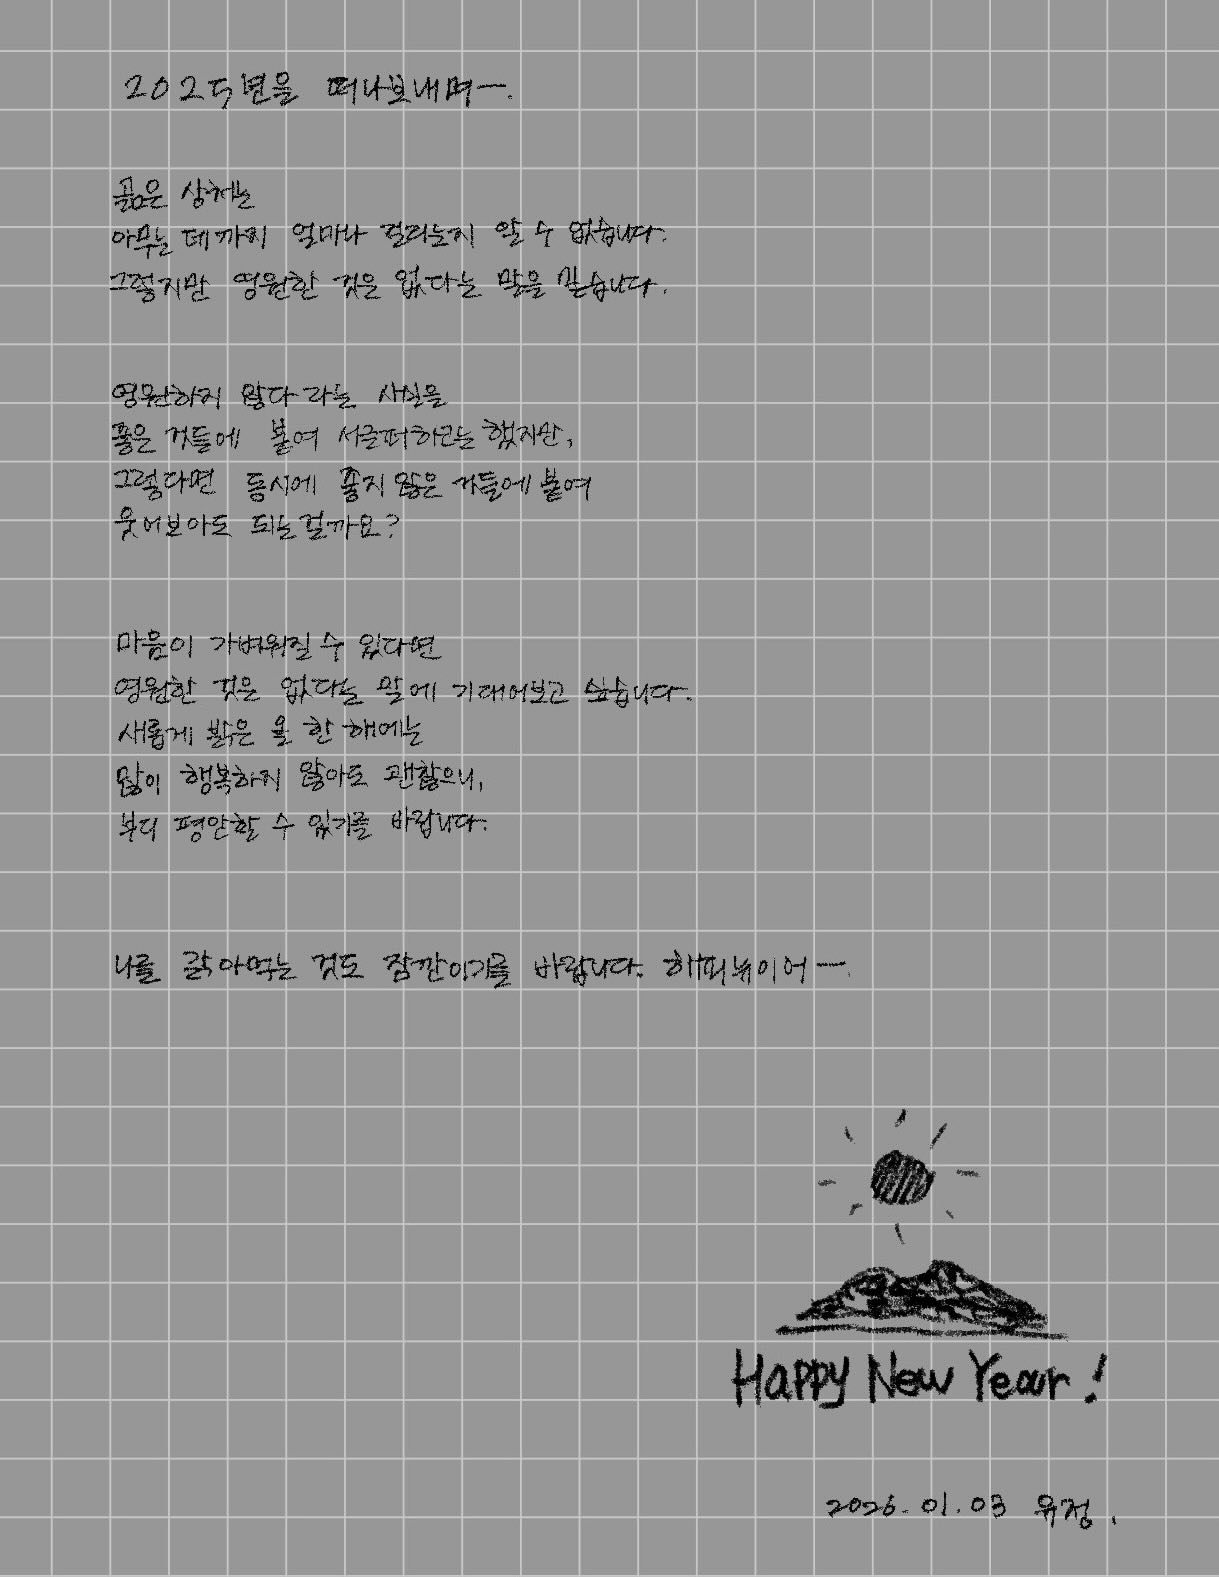 2025년을 떠나보내며—.
곪은 상처는
아무는 데까지 얼마나 걸리는지 알 수 없습니다.
그렇지만 영원한 것은 없다는 말을 믿습니다.
영원하지 않다 라는 사실을
좋은 것들에 붙여 서글퍼하고는 했지만,
그렇다면 동시에 좋지 않은 것들에 붙여
웃어보아도 되는걸까요?
마음이 가벼워질 수 있다면
영원한 것은 없다는 말에 기대어보고 싶습니다.
새롭게 밝은 올 한 해에는
많이 행복하지 않아도 괜찮으니,
부디 평안할 수 있기를 바랍니다.
나를 갉아먹는 것도 잠깐이기를 바랍니다. 해피뉴이어—.
Happy New Year!
2026.01.03 유정.